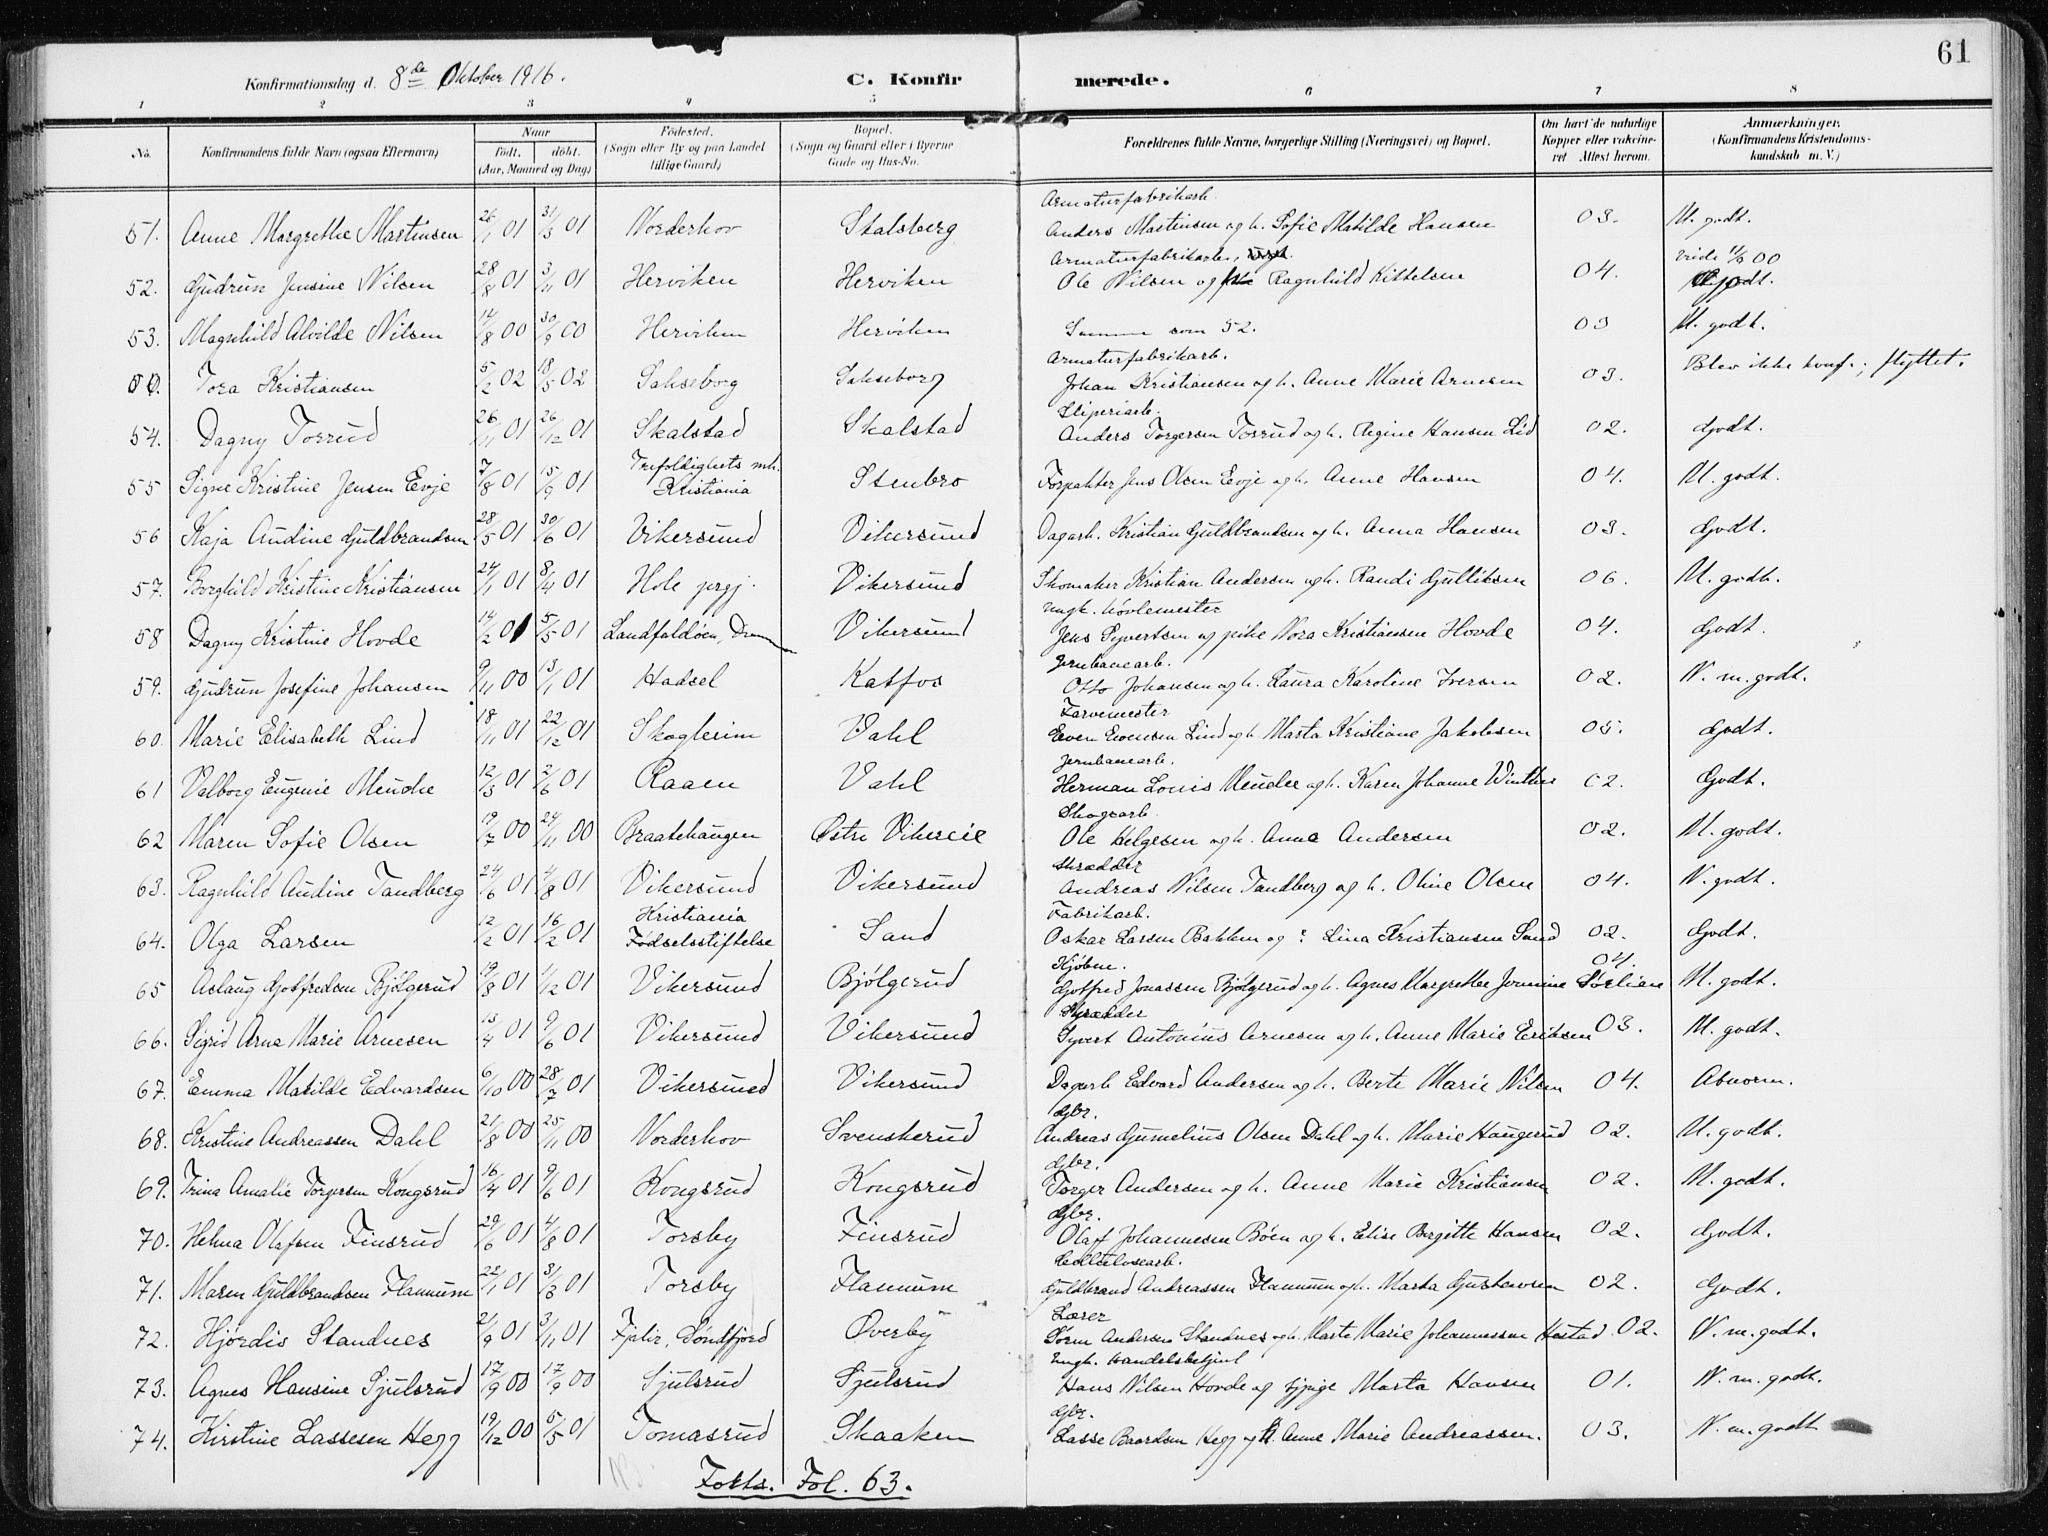 61
Konfirmationsdag d. 8de Oktober 1916. C. Konfirmerede.
1 2 3 4 5 6 7 8
No. Konfirmandens fulde Navn (ogsaa Efternavn) Naar født, døbt. (Aar, Maaned og Dag) Fødested. (Sogn eller By og paa Landet tillige Gaard) Bopæl. (Sogn og Gaard eller i Byerne Gade og Hus-No. Forældrenes fulde Navne, borgerlige Stilling (Næringsvei) og Bopæl. Om havt de naturlige Kopper eller vakcineret Attest herom. Anmærkninger. (Konfirmandens Kristendomskundskab m. V.)
Armaturfabrikarb.
51. Anne Margrethe Martinsen 26/1 01 31/3 01 Norderhov Stalsberg Anders Martinsen og h. Sofie Matilde Hansen 03. M. godt.
Armaturfabrikarb.,
52. Gudrun Jensine Nilsen 28/8 01 3/11 01 Herviken Herviken Ole Nilsen og Ragnhild Kittelsen 04. Godt.
53. Magnhild Alvilde Nilsen 14/8 00 30/9 00 Herviken Herviken Samme som 52. 03 M. godt.
Armaturfabrikarb.
Tora Kristiansen 5/2 02 18/5 02 Sakseborg Sakseborg Johan Kristiansen og h. Anne Marie Arnesen 03. Blev ikke konf.; flyttet.
Sliperiarb.
54. Dagny Torrud 26/11 01 26/12 01 Skalstad Skalstad Anders Torgersen Torrud og h. Regine Hansen Lid 02. Godt.
55 Signe Kristine Jensen Evje 7/8 01 15/9 01 Trefoldighets mh. Kristiania Stenbro Forpakter Jens Olsen Evje og h. Anne Hansen 04. M. godt.
56 Kaja Andine Guldbrandsen 28/5 01 30/6 01 Vikersund Vikersund Dagarb. Kristian Guldbrandsen og h. Anna Hansen 03. Godt.
57. Borghild Kristine Kristiansen 24/1 01 8/4 01 Hole prgj. Vikersund Skomaker Kristian Andersen og h. Randi Gulliksen 06. M. godt.
Ungk. høvlemester
58 Dagny Kristine Hovde 14/2 01 5/5 01 Landfaldøen, Dramm Vikersund Jens Syvertsen og pike Nora Kristiansen Hovde 04. Godt.
Jernbanearb.
59. Gudrun Josefine Johansen 9/11 00 13/1 01 Hadsel Katfos Otto Johansen og h. Laura Karoline Iversen 02. N. m. godt.
Farvemester
60. Marie Elisabeth Lind 18/11 01 22/12 01 Skoglerim Vahl Even Evensen Lind og h. Marta Kristiane Jakobsen 05. Godt.
Jernbanearb.
61 Valborg Eugenie Mencke 12/3 01 2/6 01 Raaen Vahl Herman Louis Mencke og h. Karen Johanne Winther 02. Godt.
Skogsarb.
62 Maren Sofie Olsen 19/7 00 24/11 00 Braatehaugen Østre Vikercie Ole Helgesen og h. Anne Andersen 02. M. godt.
Skrædder
63. Ragnhild Andine Tandberg 24/6 01 4/8 01 Vikersund Vikersund Andreas Nilsen Tandberg og h. Oline Olsen 04. N. godt.
Fabrikarb.
64. Olga Larsen 12/2 01 16/2 01 Kristiania Fødselsstiftelse Sand Oskar Larsen Bakken og ? Lina Kristiansen Sand 02. Godt.
Kjøbm.
65 Aslaug Gotfredsen Bjølgerud 19/8 01 1/12 01 Vikersund Bjølgerud Gotfred Jonassen Bjølgerud og h. Agnes Margrethe Jermine Sørlien 04. M. godt.
Skrædder
66. Sigrid Arna Marie Arnesen 13/4 01 9/6 01 Vikersund Vikersund Syvert Antonius Arnesen og h. Anne Marie Eriksen 03. M. godt.
67. Emma Matilde Edvardsen 6/10 00 28/7 01 Vikersund Vikersund Dagarb Edvard Andersen og h. Berte Marie Nilsen 04. Abnorm.
Gbr.
68. Kristine Andreassen Dahl 21/8 00 25/11 00 Norderhov Svenskerud Andreas Gumelius Olsen Dahl og h. Marie Haugerud 02. M. godt.
Gbr.
69. Trina Amalie Torgersen Kongsrud 16/4 01 9/6 01 Kongsrud Kongsrud Torger Andersen og h. Anne Marie Kristiansen 02. M. godt.
Gbr.
70. Helma Olafsen Finsrud 29/6 01 4/8 01 Torsby Finsrud Olaf Johannesen Bøen og h. Elise Bergitte Hansen 02. Godt.
Cellulosearb.
71. Maren Guldbrandsen Flannum 22/1 01 31/3 01 Torsby Flannum Guldbrand Andreassen Flannum og h. Marta Gustavsen 02. Godt.
Lærer
72. Hjørdis Standnes 21/9 01 3/11 01 Fjalir, Søndfjord Overby Sørn Andersen Standnes og h. Marte Marie Johannessen Hestad 02. N. m. godt.
Ungk. Handelsbetjent
73. Agnes Hansine Sjulsrud 17/9 00 17/9 00 Sjulsrud Sjulsrud Hans Nilsen Hovde og pige Marta Hansen 01. N. m. godt.
Gbr.
74. Kirstine Lassesen Hegg 19/12 00 5/5 01 Tomasrud Skaaken Lasse Baardsen Hegg og h. Anne Marie Andreassen. 03. N. m. godt
Forts. Fol. 63.